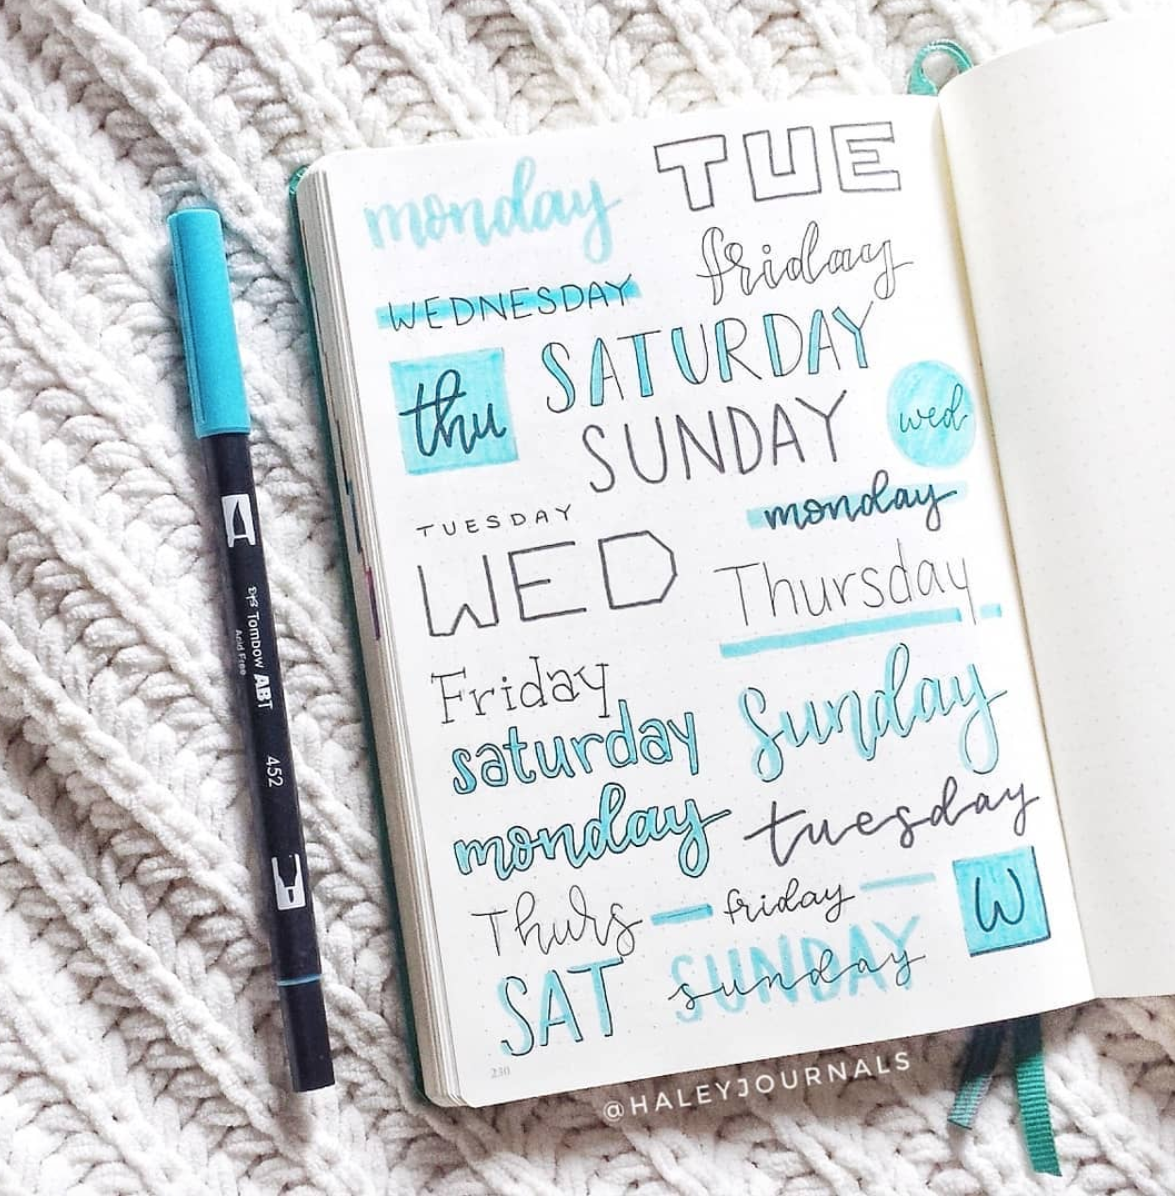 monday TUE
friday
WEDNESDAY
SATURDAY
thu
wed
SUNDAY
monday
TUESDAY
WED
Thursday
Friday
Sunday
saturday
monday
tuesday
Thurs friday W
SAT SUNDAY sunday
230
@HALEYJOURNALS
Tombow ABT
Acid Free
452